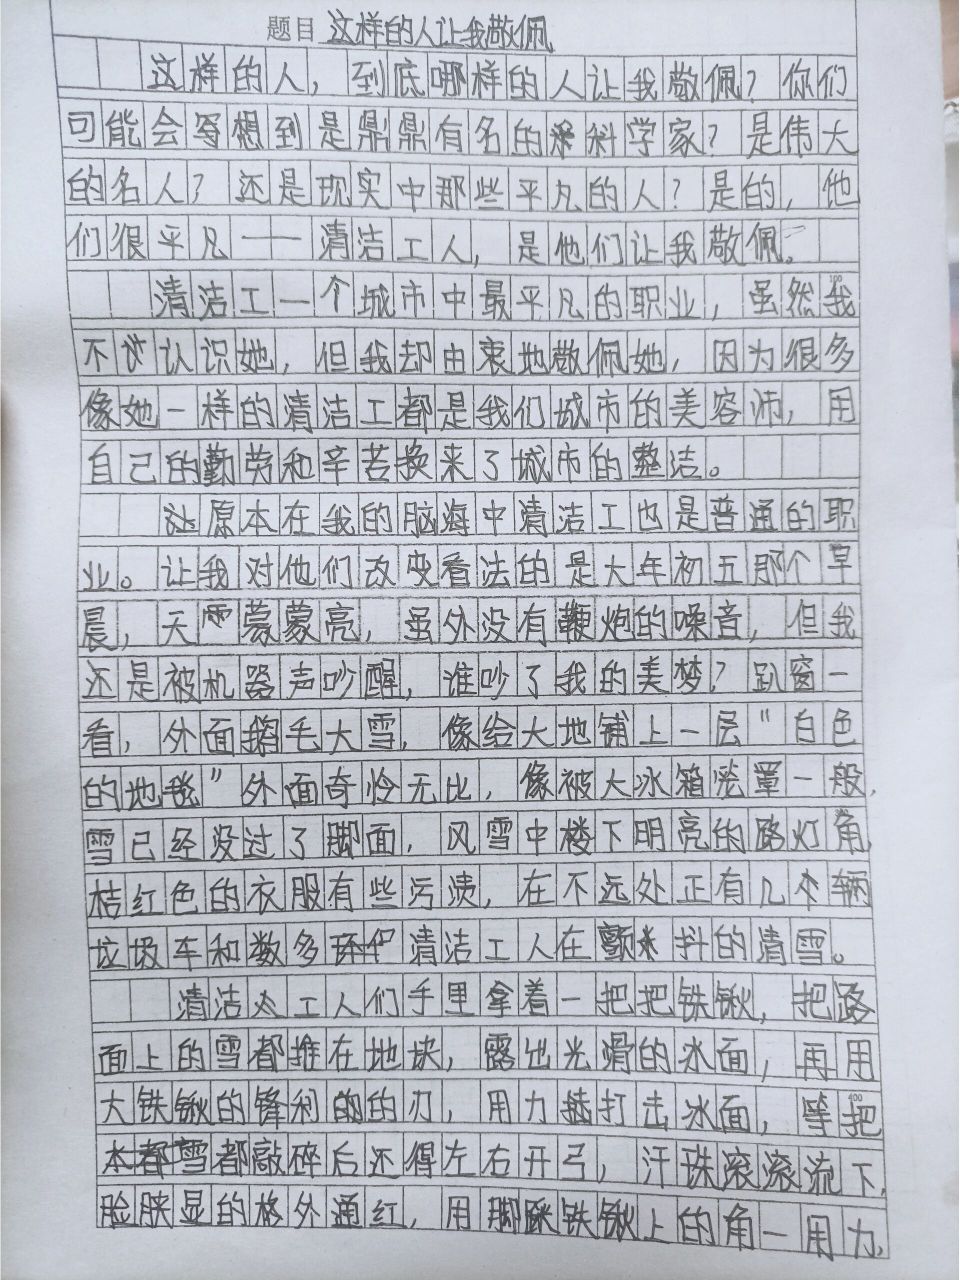 题目 这样的人让我敬佩
这样的人，到底哪样的人让我敬佩？你们
可能会想到是鼎鼎有名的科学家？是伟大
的名人？还是现实中那些平凡的人？是的，他
们很平凡——清洁工人，是他们让我敬佩。
清洁工一个城市中最平凡的职业，虽然我
100
不认识她，但我却由衷地敬佩她，因为很多
像她一样的清洁工都是我们城市的美容师，用
自己的勤劳和辛苦换来了城市的整洁。
原本在我的脑海中清洁工也是普通的职
业。让我对他们改变看法的是大年初五那个早
晨，天蒙蒙亮，虽外没有鞭炮的噪音，但我
还是被机器声吵醒，谁吵了我的美梦？趴窗一
看，外面鹅毛大雪，像给大地铺上一层“白色
的地毯”外面奇冷无比，像被大冰箱笼罩一般，
雪已经没过了脚面，风雪中楼下明亮的路灯角，
桔红色的衣服有些污渍，在不远处正有几辆
垃圾车和数多清洁工人在颤抖的清雪。
清洁工人们手里拿着一把把铁锹，把路
面上的雪都推在地块，露出光滑的冰面，再用
大铁锹的锋利的刃，用力打击冰面，等把
100
雪都敲碎后还得左右开弓，汗珠滚滚流下，
脸颊显的格外通红，用脚踩铁锹上的角一用力，